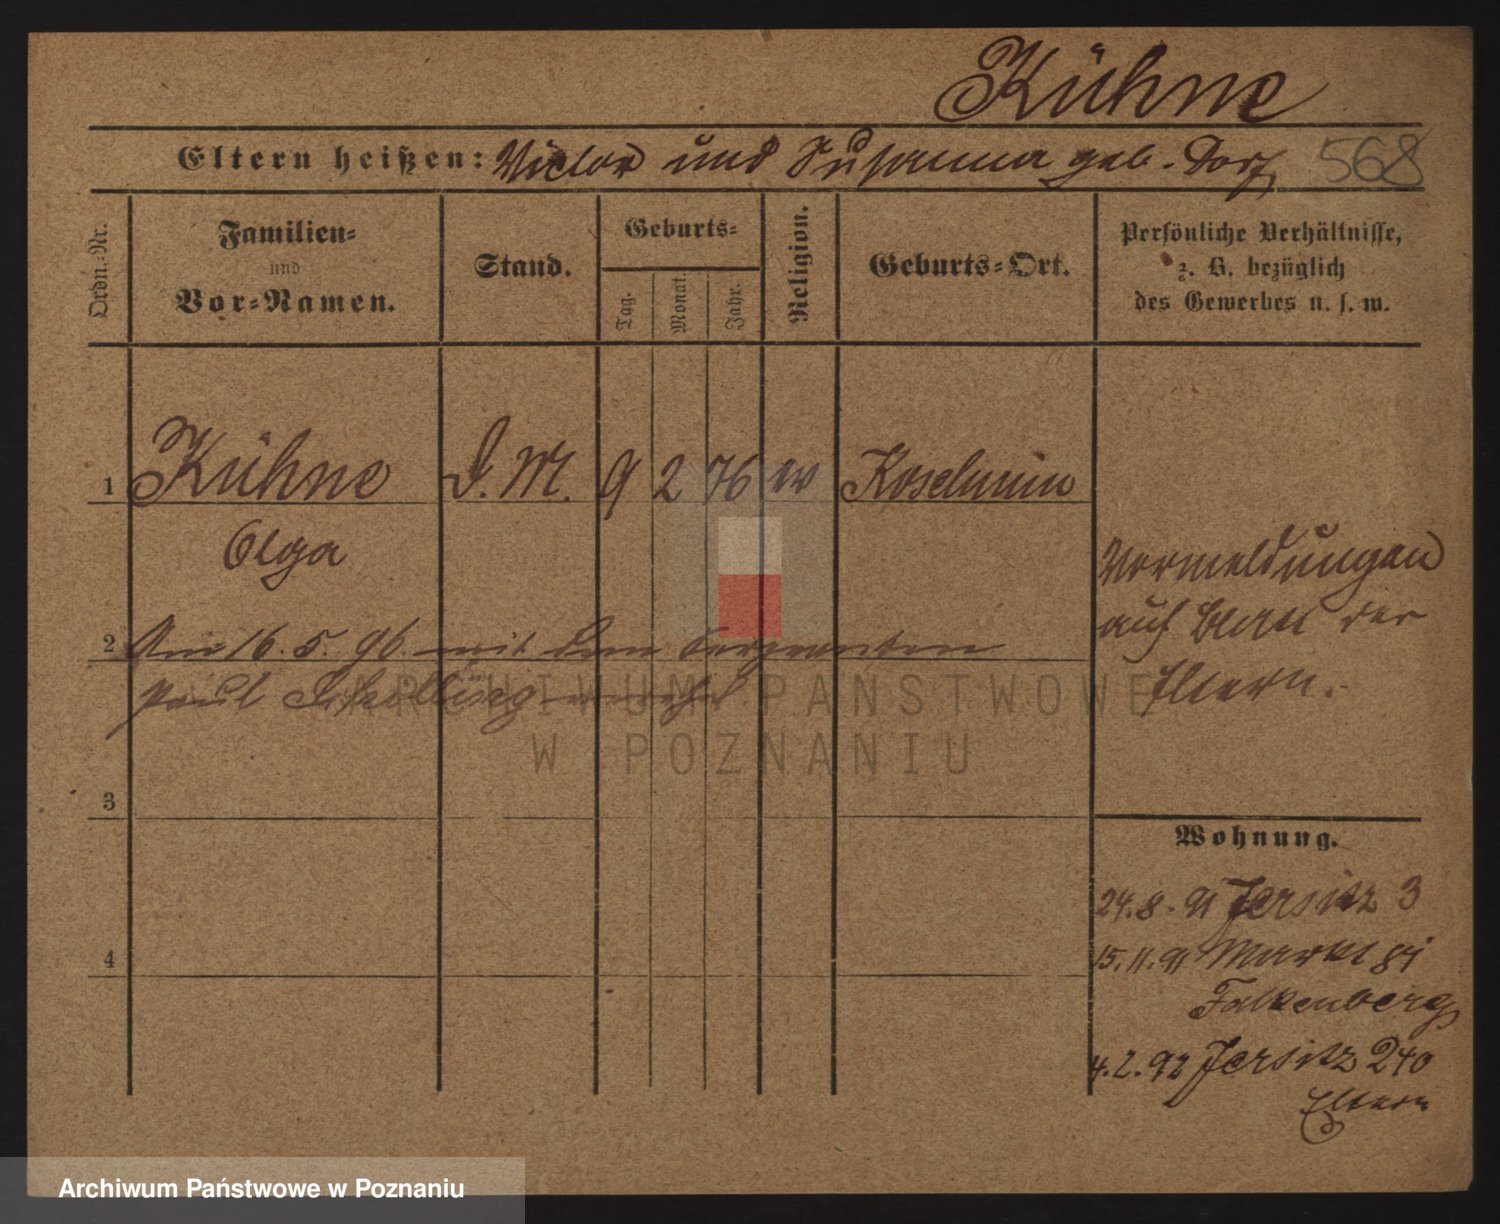 Kühne
Eltern heißen: Victor und Susanna geb. Dorf
568
Ordn.-Nr.
Familien-
und
Vor-Namen.
Stand.
Geburts-
Tag.
Monat.
Jahr.
Religion.
Geburts-Ort.
Persönliche Verhältnisse,
z. B. bezüglich
des Gewerbes u. s. w.
1 Kühne D. M. 9 2 76 ev Koschmin
Olga
2 Am 16. 5. 96 mit dem Sergeanten
Paul Schilling verehel
Vormeldungen
auf Blatt der
Eltern.
ARCHIWUM PAŃSTWOWE
W POZNANIU
3
4
Wohnung.
24. 8. 91 Jersitz 3
15. 11. 91 Markt 81
Falkenberg
4. 2. 92 Jersitz 240
Eltern
Archiwum Państwowe w Poznaniu